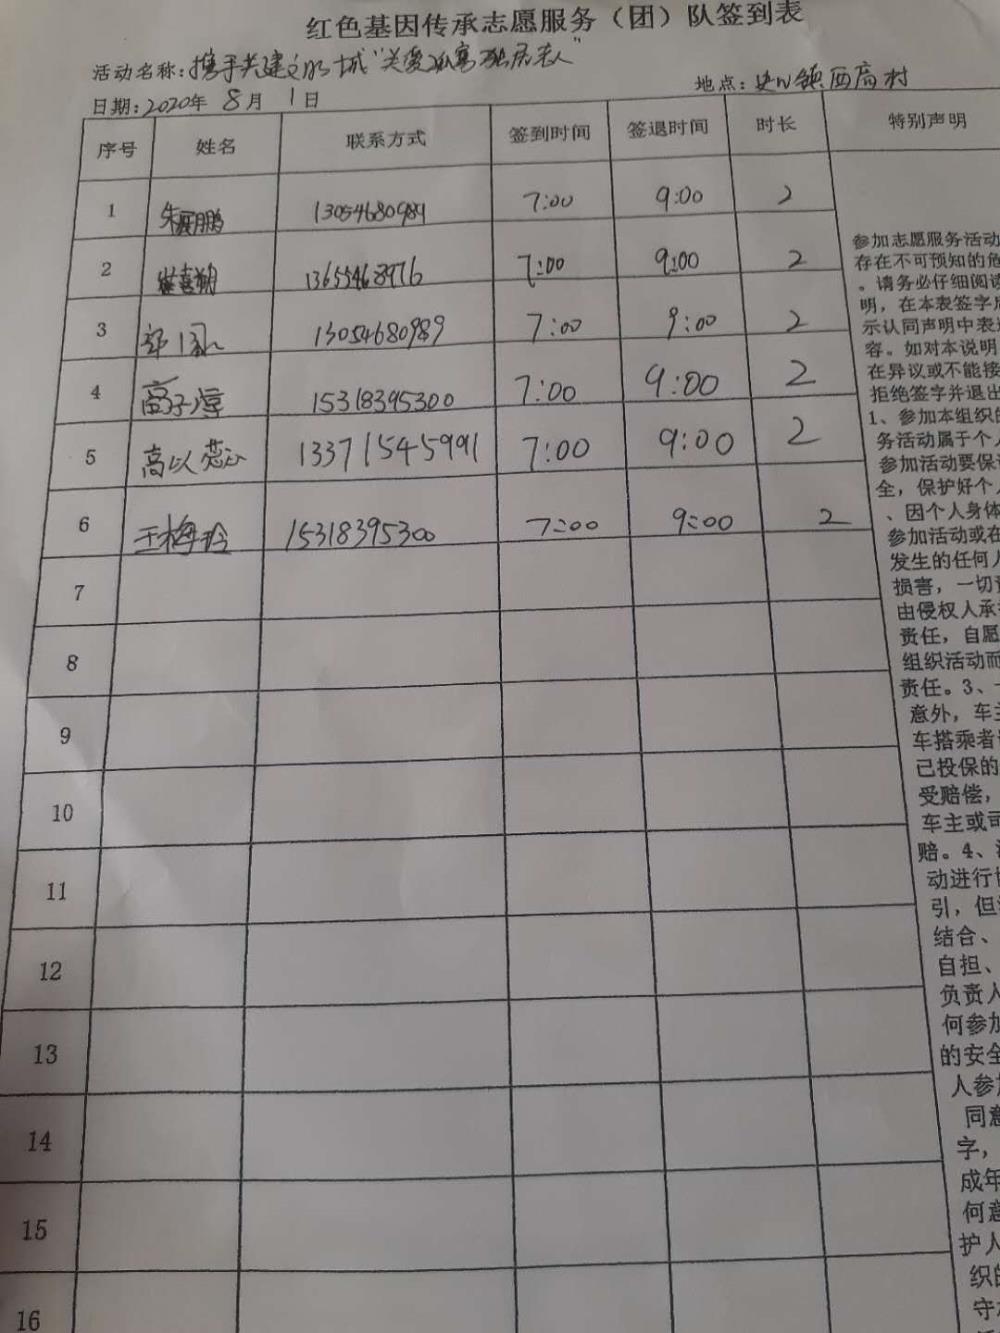 红色基因传承志愿服务（团）队签到表
活动名称：携手共建文明城"关爱孤寡独居老人"
地点： 镇西高村
日期：2020年 8月 1日
序号 姓名 联系方式 签到时间 签退时间 时长 特别声明
1 朱展鹏 13054680989 7:00 9:00 2
2 崔喜朝 13655468976 7:00 9:00 2
3 郭 13054680989 7:00 9:00 2
4 高子淳 15318395300 7:00 9:00 2
5 高以 13371545991 7:00 9:00 2
6 王梅玲 15318395300 7:00 9:00 2
7
8
9
10
11
12
13
14
15
16
参加志愿服务活动
存在不可预知的危
。请务必仔细阅读
明，在本表签字后
示认同声明中表述
容。如对本说明
在异议或不能接
拒绝签字并退出
1、参加本组织的
务活动属于个人
参加活动要保证
全，保护好个人
、因个人身体
参加活动或在
发生的任何人
损害，一切责
由侵权人承担
责任，自愿
组织活动而
责任。3、
意外，车主
车搭乘者
已投保的
受赔偿，
车主或司
赔。4、活
动进行协
引，但
结合、
自担、
负责人
何参加
的安全
人参加
同意
字，
成年
何意
护人
织的
守